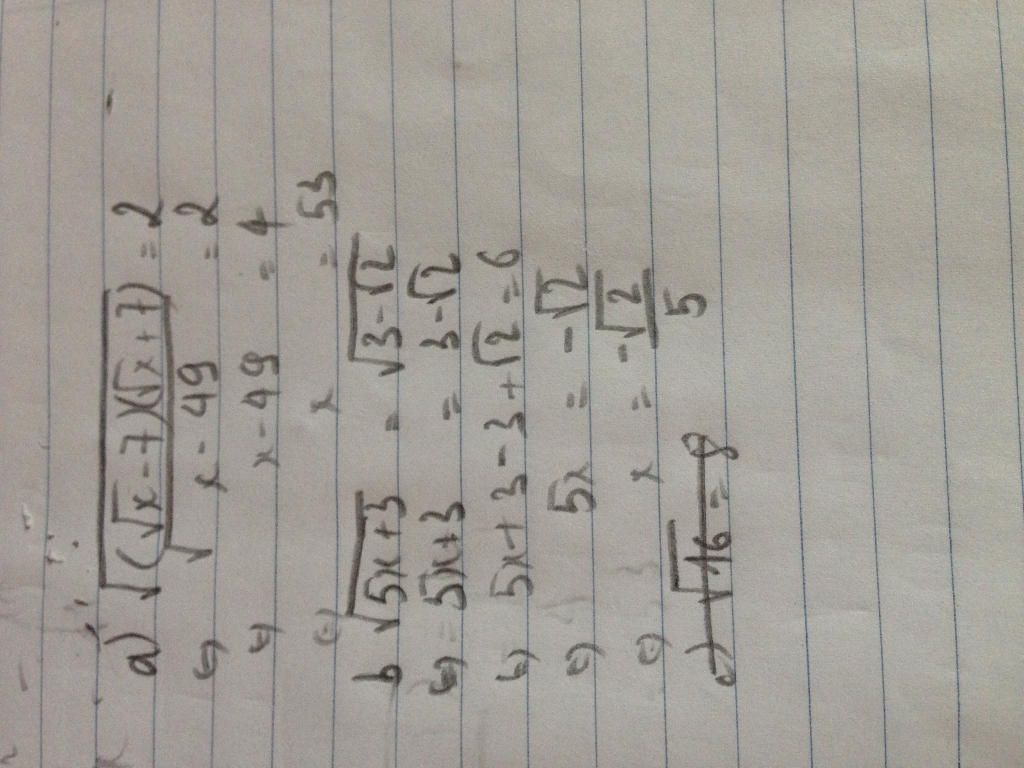 a) √((√x - 7)(√x + 7)) = 2
⇔ √(x - 49) = 2
⇔ x - 49 = 4
⇔ x = 53
b √(5x+3) = √(3-√2)
⇔ 5x+3 = 3-√2
⇔ 5x+3-3+√2 = 6
⇔ 5x = -√2
⇔ x = -√2/5
√16 = 8